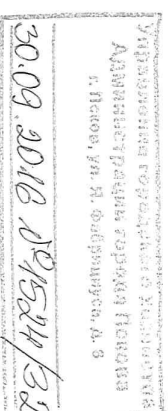 Управление городского хозяйства
Администрации города Пскова
г. Псков, ул. Я. Фабрициуса д. 6
30.09.2016 № 1524/3